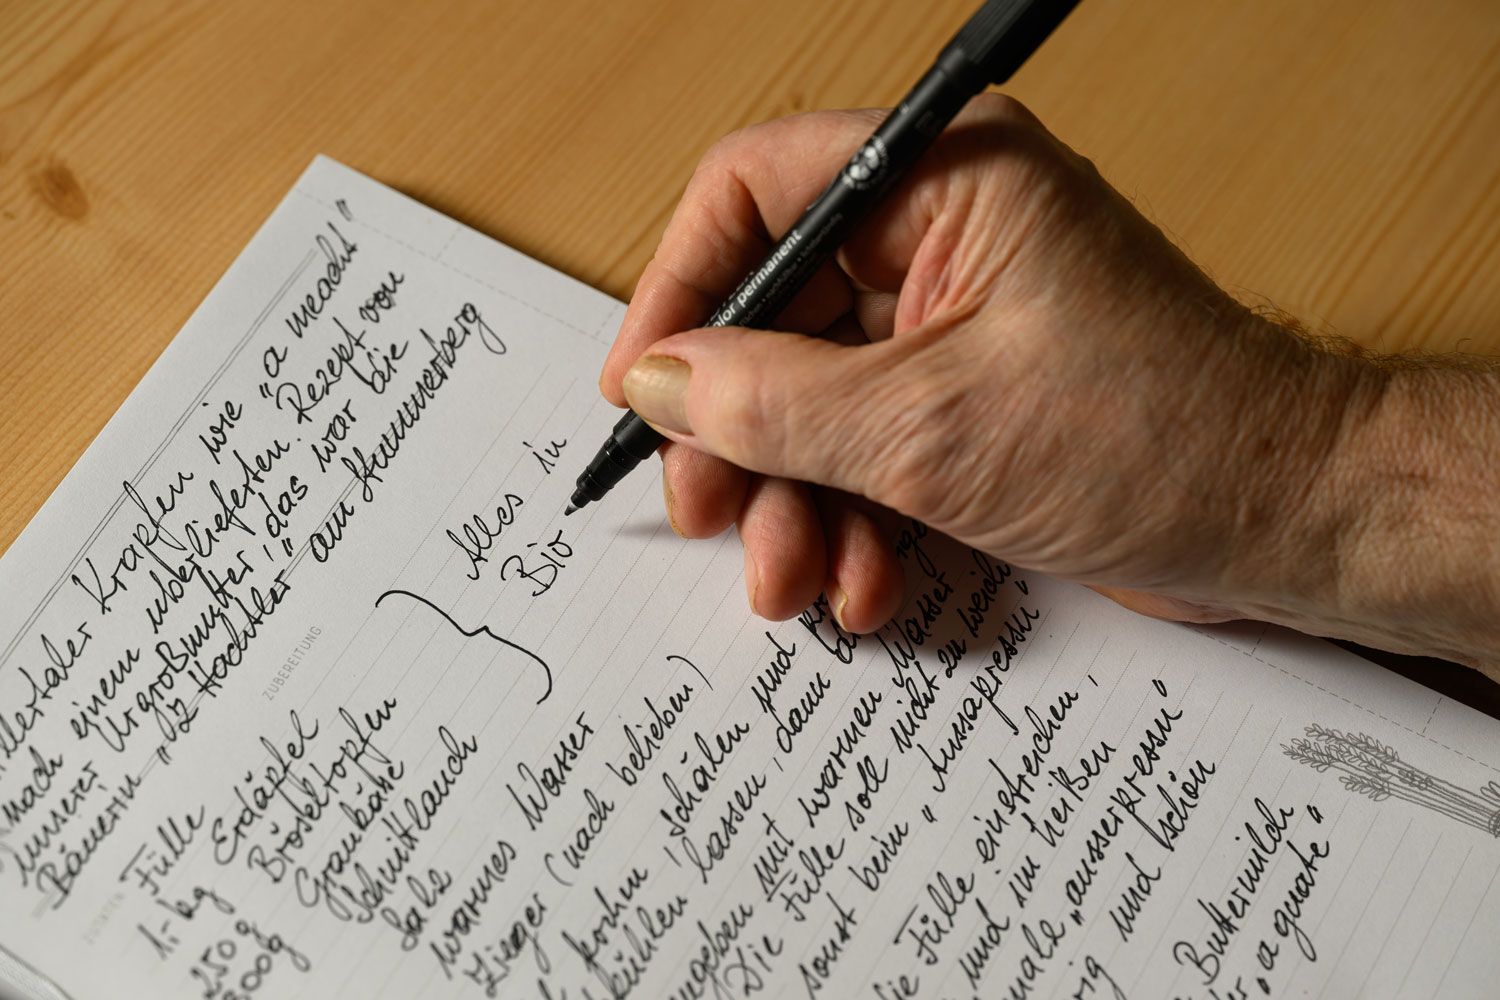 Krapfen wie „a meacht"
nach einem überlieferten Rezept von
unserer Urgroßmutter, das war die
Bäuerin „ Hochtler" am Hummerberg
ZUBEREITUNG
ZUTATEN
Fülle
1.- kg Erdäpfel
250 g Bröseltopfen
300g Graukäse
Schnittlauch
Salz
warmes Wasser
Zieger (nach belieben)
Alles in
Bio
kochn, schälen und
kühlen lassen, dann
mit warmen Wasser
Die Fülle soll nicht zu weich
sonst beim „Aussapressn"
Fülle einstreichen,
und im heißen
„ausserpressn"
und schön
Buttermilch
„a guate"
color permanent